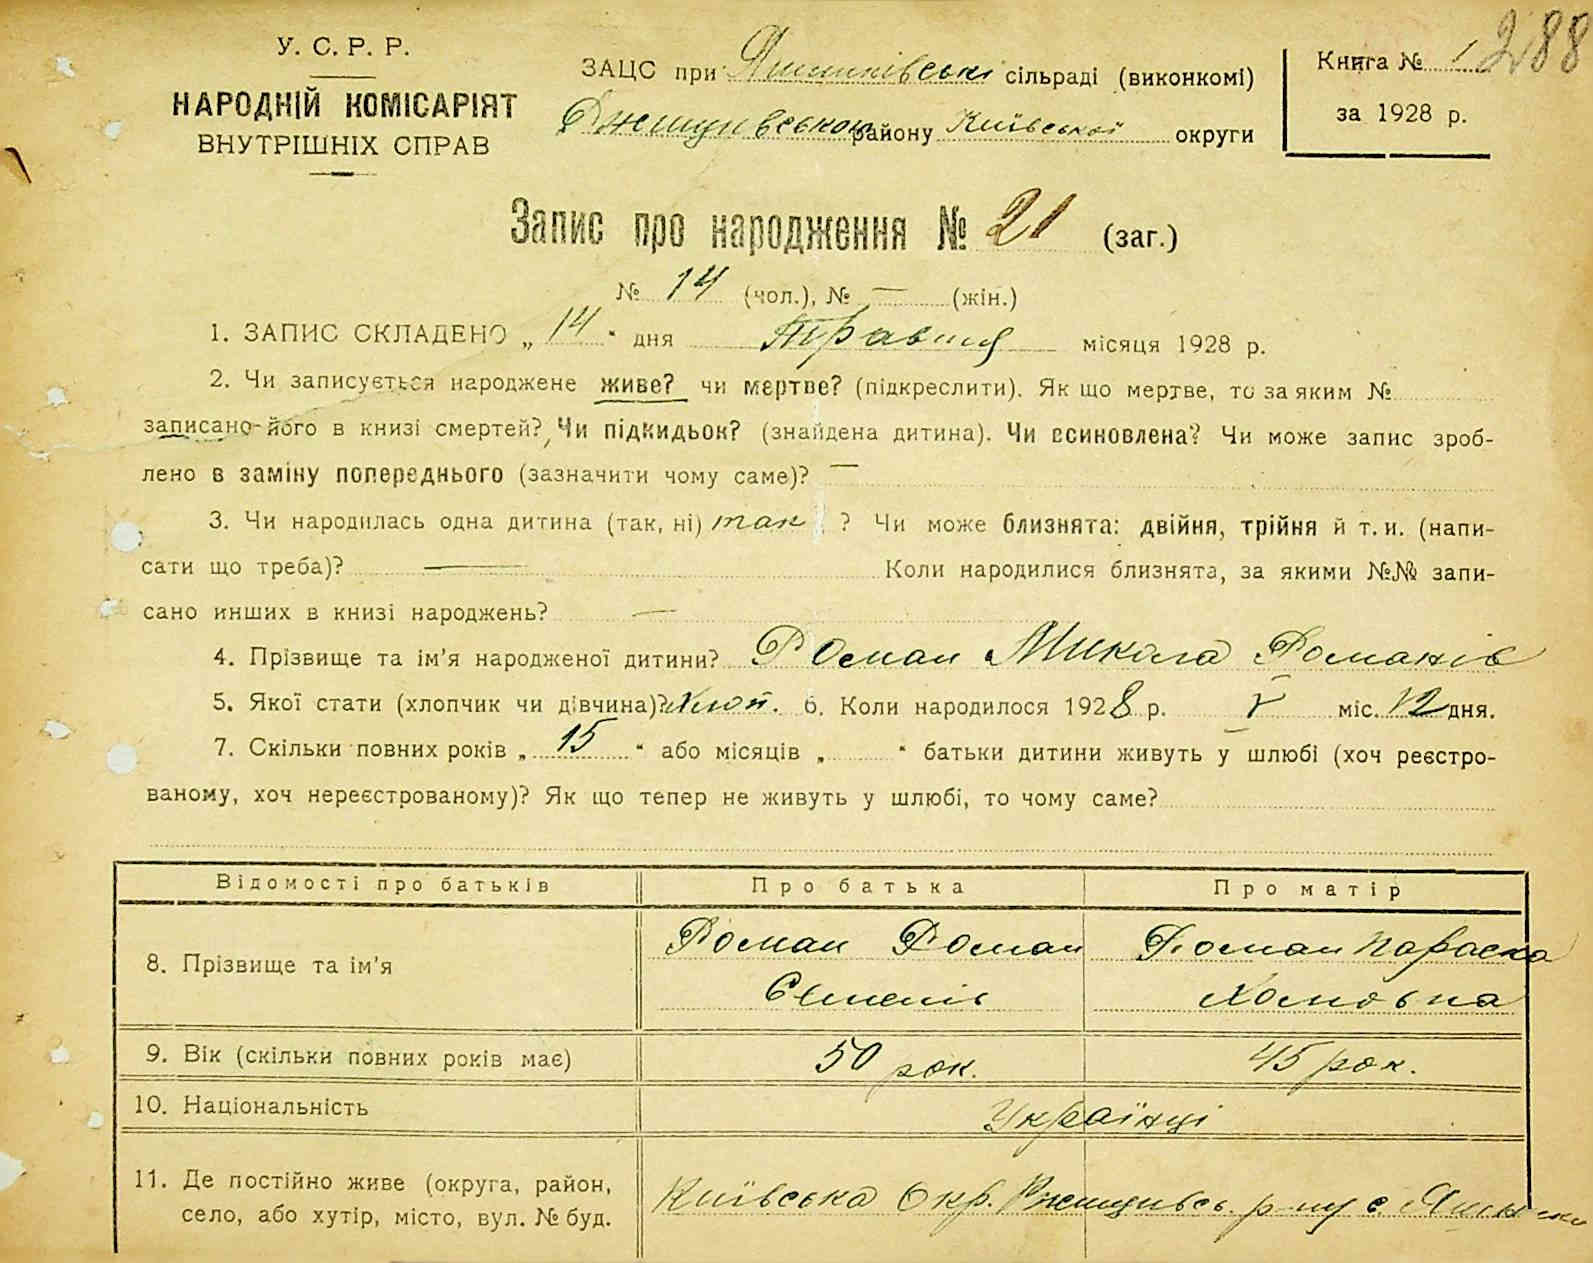 288
У. С. Р. Р.
НАРОДНІЙ КОМІСАРІЯТ
ВНУТРІШНІХ СПРАВ
ЗАЦС при сільраді (виконкомі)
району Київської округи
Книга № 1
за 1928 р.
Запис про народження № 21 (заг.)
№ 14 (чол.), № — (жін.)
1. ЗАПИС СКЛАДЕНО „ 14 “ дня Травня місяця 1928 р.
2. Чи записується народжене живе? чи мертве? (підкреслити). Як що мертве, то за яким №
записано його в книзі смертей? Чи підкидьок? (знайдена дитина). Чи всиновлена? Чи може запис зроб-
лено в заміну попереднього (зазначити чому саме)? —
3. Чи народилась одна дитина (так, ні) так ? Чи може близнята: двійня, трійня й т. и. (напи-
сати що треба)? — Коли народилися близнята, за якими №№ запи-
сано инших в книзі народжень? —
4. Прізвище та ім’я народженої дитини? Роман Микола Романів
5. Якої стати (хлопчик чи дівчина)? Хлоп. 6. Коли народилося 1928 р. V міс. 12 дня.
7. Скільки повних років „ 15 “ або місяців „ “ батьки дитини живуть у шлюбі (хоч реєстро-
ваному, хоч нереєстрованому)? Як що тепер не живуть у шлюбі, то чому саме?
Відомості про батьків Про батька Про матір
8. Прізвище та ім’я Роман Роман Роман Параска
Хомовна
9. Вік (скільки повних років має) 50 рок. 45 рок.
10. Національність Українці
11. Де постійно живе (округа, район,
село, або хутір, місто, вул. № буд.
Київська Окр. р-ну с.